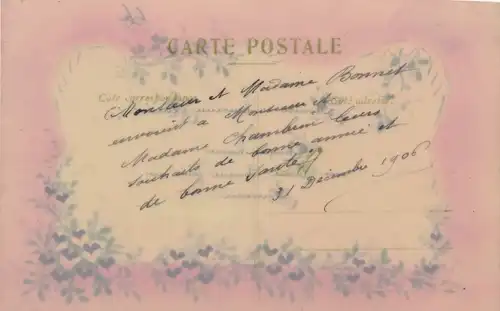 CARTE POSTALE
Côté correspondance
Côté adresse
Monsieur et Madame Bonnet
envoient à Monsieur et
Madame Chambein leurs
souhaits de bonne année et
de bonne santé
31 Décembre 1906